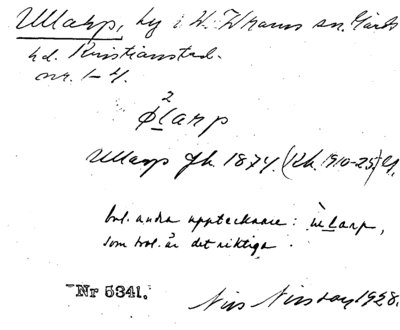 Ullarp, by i V. Vram sn. Gärds
hd. Kristianstad.
nr. 1-4.
2
ølarp
Ullarp jb. 1874. (Kb. 1910-25)
bol. andra upptecknare: ùlarp,
som bol. är det riktiga.
Nr 5341.
Nils 1928.